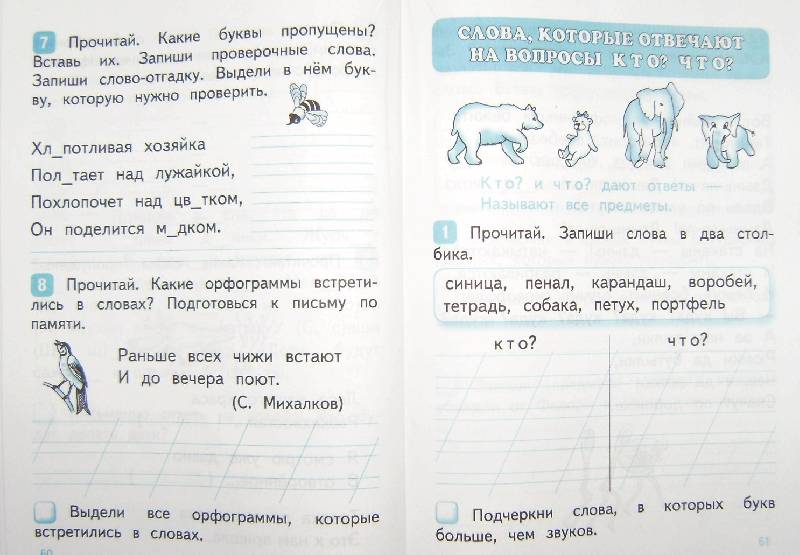 7 Прочитай. Какие буквы пропущены?
Вставь их. Запиши проверочные слова.
Запиши слово-отгадку. Выдели в нём бук-
ву, которую нужно проверить.
Хл_потливая хозяйка
Пол_тает над лужайкой,
Похлопочет над цв_тком,
Он поделится м_дком.
8 Прочитай. Какие орфограммы встрети-
лись в словах? Подготовься к письму по
памяти.
Раньше всех чижи встают
И до вечера поют.
(С. Михалков)
Выдели все орфограммы, которые
встретились в словах.
60
СЛОВА, КОТОРЫЕ ОТВЕЧАЮТ
НА ВОПРОСЫ КТО? ЧТО?
Кто? и что? дают ответы —
Называют все предметы.
1 Прочитай. Запиши слова в два стол-
бика.
синица, пенал, карандаш, воробей,
тетрадь, собака, петух, портфель
кто? что?
Подчеркни слова, в которых букв
больше, чем звуков.
61